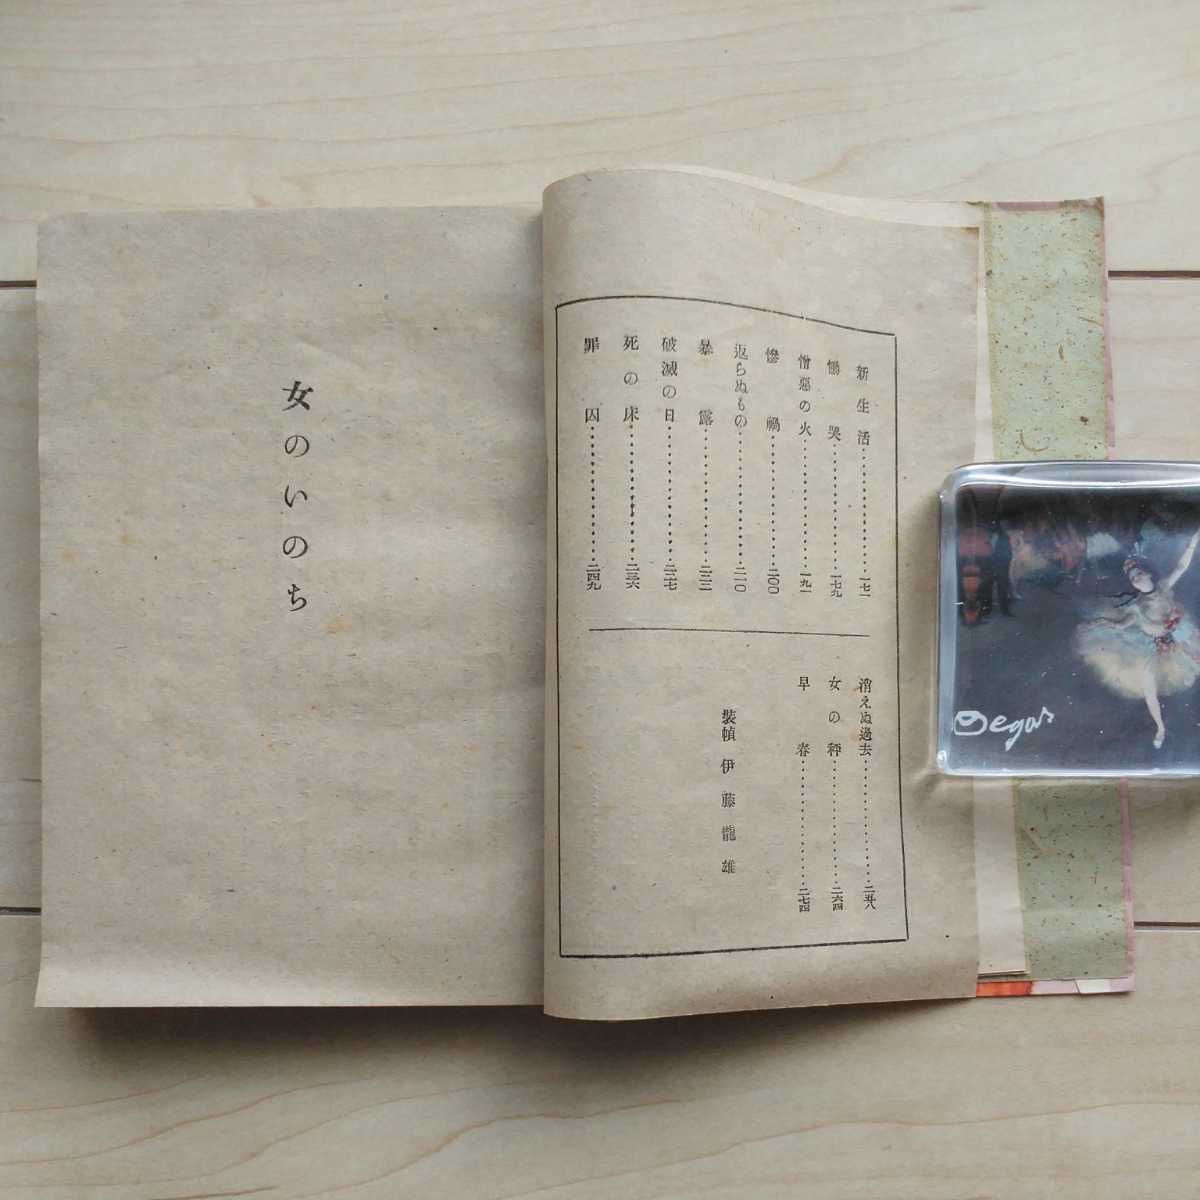 新生活……………一七一
慟哭……………一七九
憎惡の火……………一九一
慘禍……………二〇〇
返らぬもの……………二一〇
暴露……………二二二
破滅の日……………二二七
死の床……………二三六
罪囚……………二四九
消えぬ過去……………二五八
女の秤……………二六四
早春……………二七四
裝幀 伊藤龍雄
女のいのち
Degas